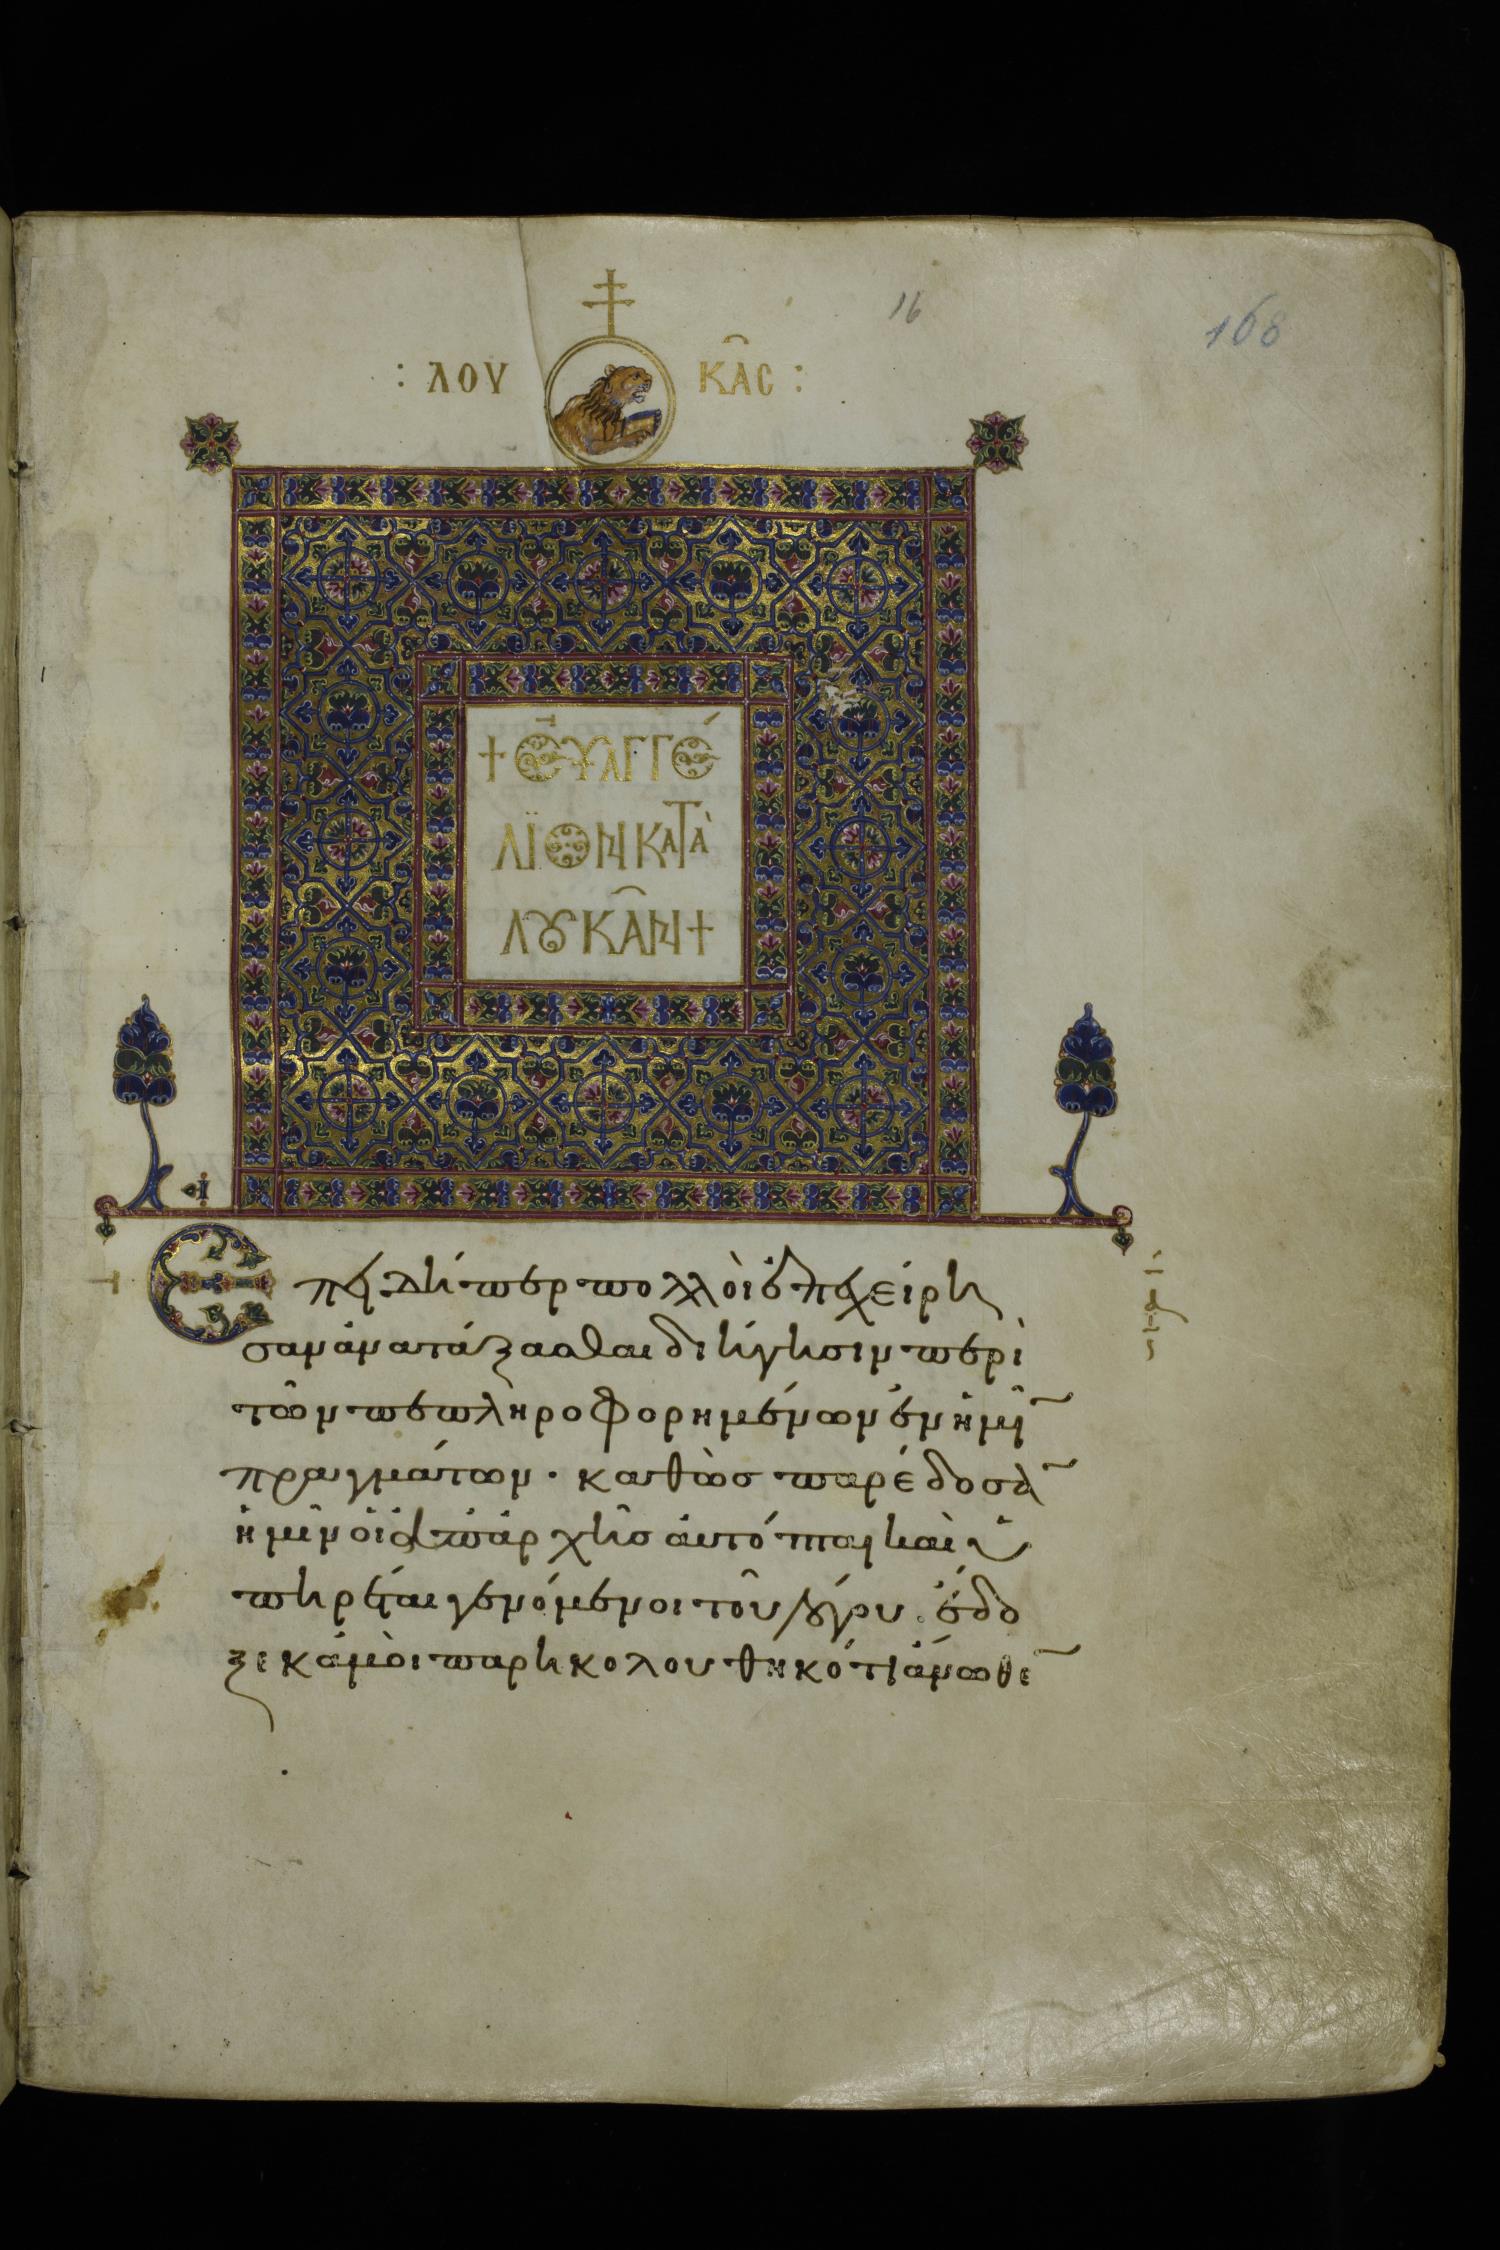 16
168
: ΛΟΥ ΚΑ͂Σ :
+ ΕΥΑΓΓΈ
ΛΪΟΝ ΚΑΤᾺ
ΛΟΥΚΑ͂Ν +
Ἐπειδήπερ πολλοὶ ἐπεχείρη
σαν ἀνατάξασθαι διήγησιν περὶ
τῶν πεπληροφορημένων ἐν ἡμῖ
πραγμάτων · καθὼς παρέδοσα
ἡμῖν οἱ ἀπαρχῆς αὐτόπται καὶ ὑ
πηρέται γενόμενοι τοῦ λόγου. ἔδο
ξε κἀμοὶ παρηκολουθηκότι ἄνωθε